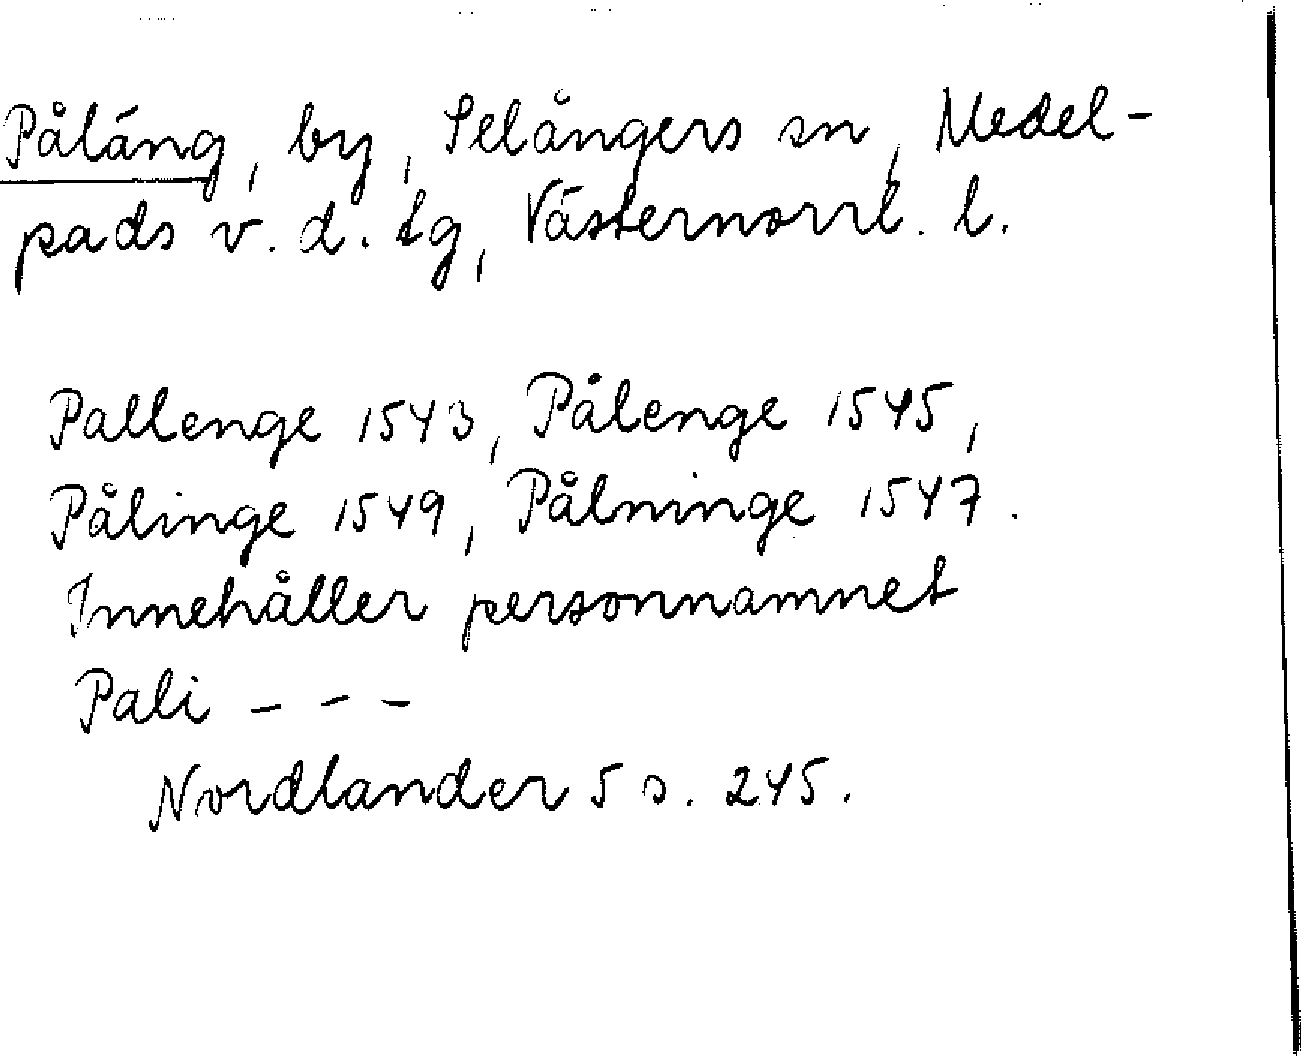 Påläng, by, Selångers sn, Medel-
pads v. d. tg, Västernorrl. l.
Pallenge 1543, Pålenge 1545,
Pålinge 1549, Pålninge 1547.
Innehåller personnamnet
Pali - - -
Nordlander 5 s. 245.